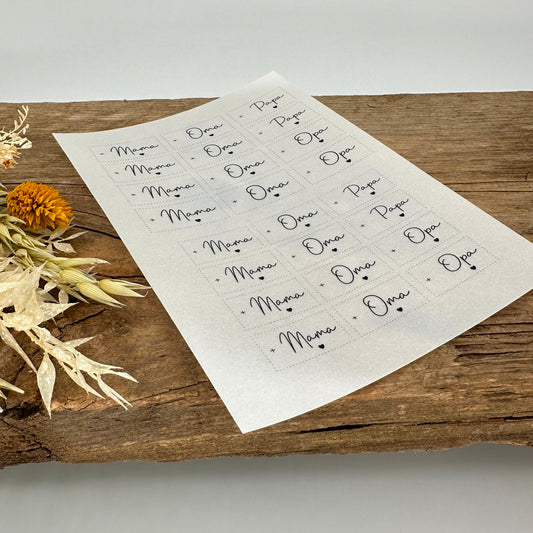 Mama Oma Papa
Mama Oma Papa
Mama Oma Opa
Mama Oma Opa
Mama Oma Papa
Mama Oma Papa
Mama Oma Opa
Mama Oma Opa